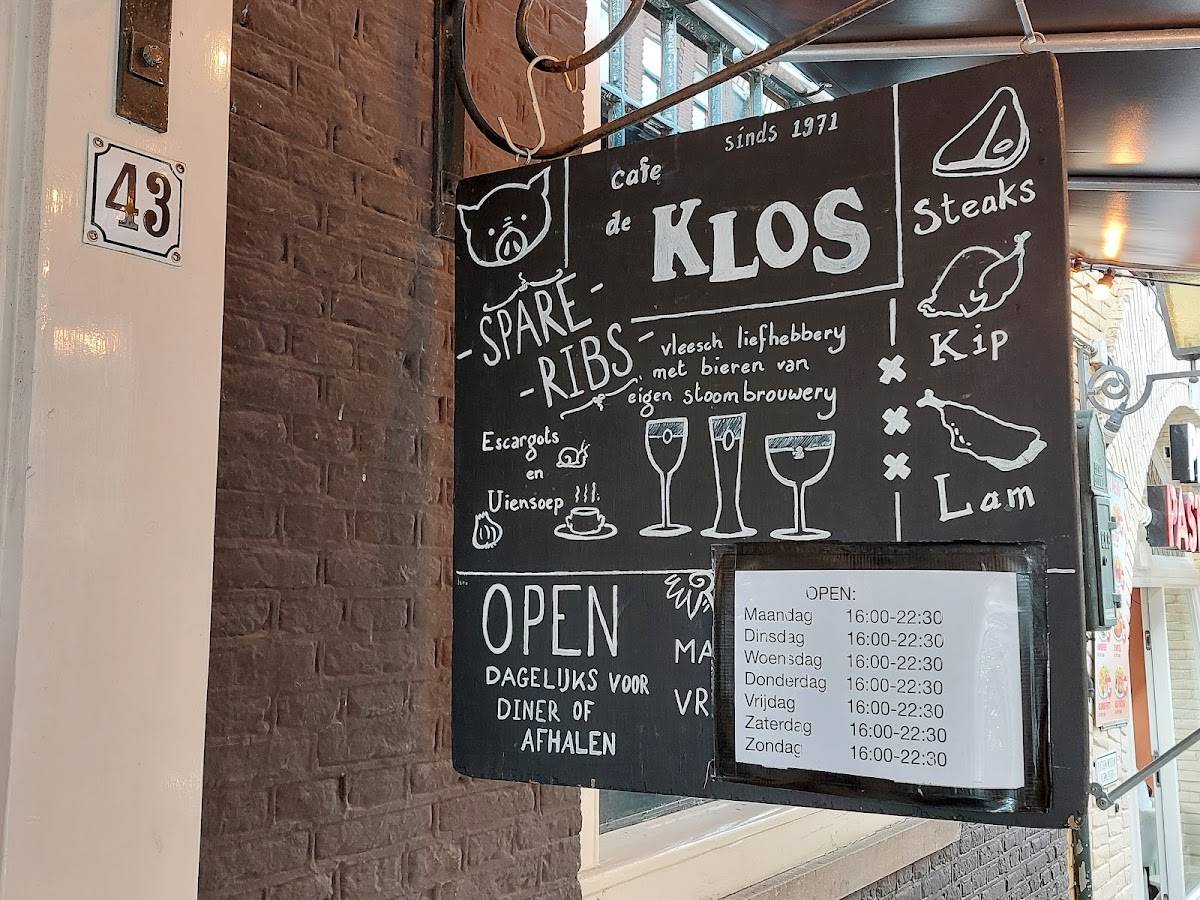 43
sinds 1971
cafe
de KLOS
SPARE-
-RIBS
vleesch liefhebbery
met bieren van
eigen stoombrouwery
Escargots
en
Uiensoep
Steaks
Kip
Lam
OPEN
DAGELIJKS VOOR
DINER OF
AFHALEN
MA
VR
OPEN:
Maandag 16:00-22:30
Dinsdag 16:00-22:30
Woensdag 16:00-22:30
Donderdag 16:00-22:30
Vrijdag 16:00-22:30
Zaterdag 16:00-22:30
Zondag 16:00-22:30
PAST